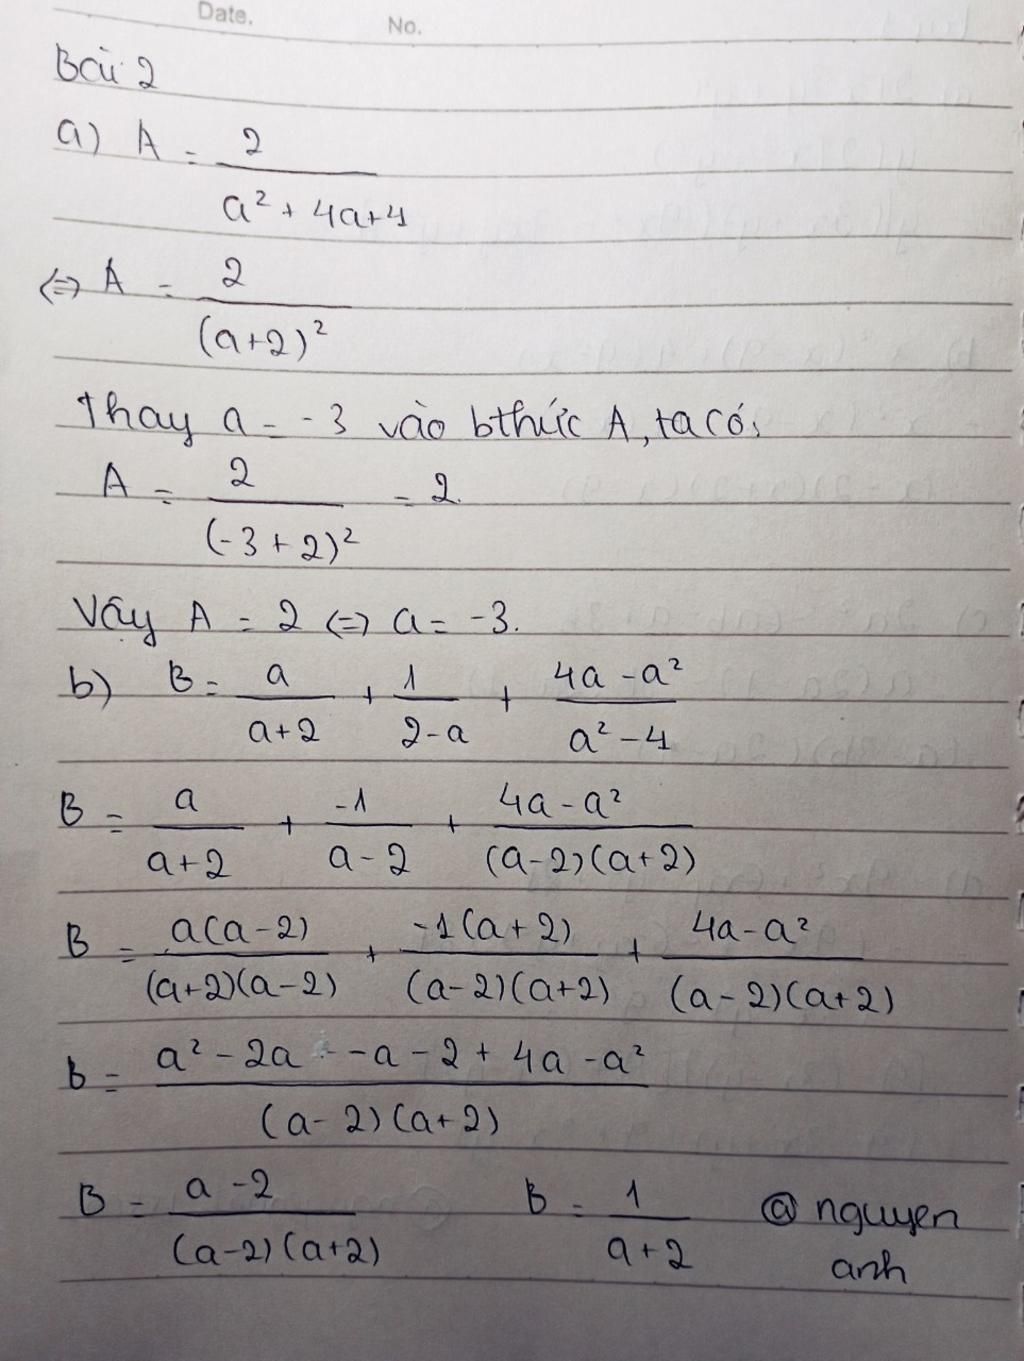 Date. No.
Bài 2
a) A = 2 / a² + 4a+4
<=> A = 2 / (a+2)²
Thay a = -3 vào bthức A, ta có:
A = 2 / (-3+2)² = 2.
Vậy A = 2 <=> a = -3.
b) B = a / a+2 + 1 / 2-a + 4a - a² / a² - 4
B = a / a+2 + -1 / a-2 + 4a - a² / (a-2)(a+2)
B = a(a-2) / (a+2)(a-2) + -1(a+2) / (a-2)(a+2) + 4a-a² / (a-2)(a+2)
B = a² - 2a - a - 2 + 4a - a² / (a-2)(a+2)
B = a - 2 / (a-2)(a+2) B = 1 / a+2 @ nguyen
anh